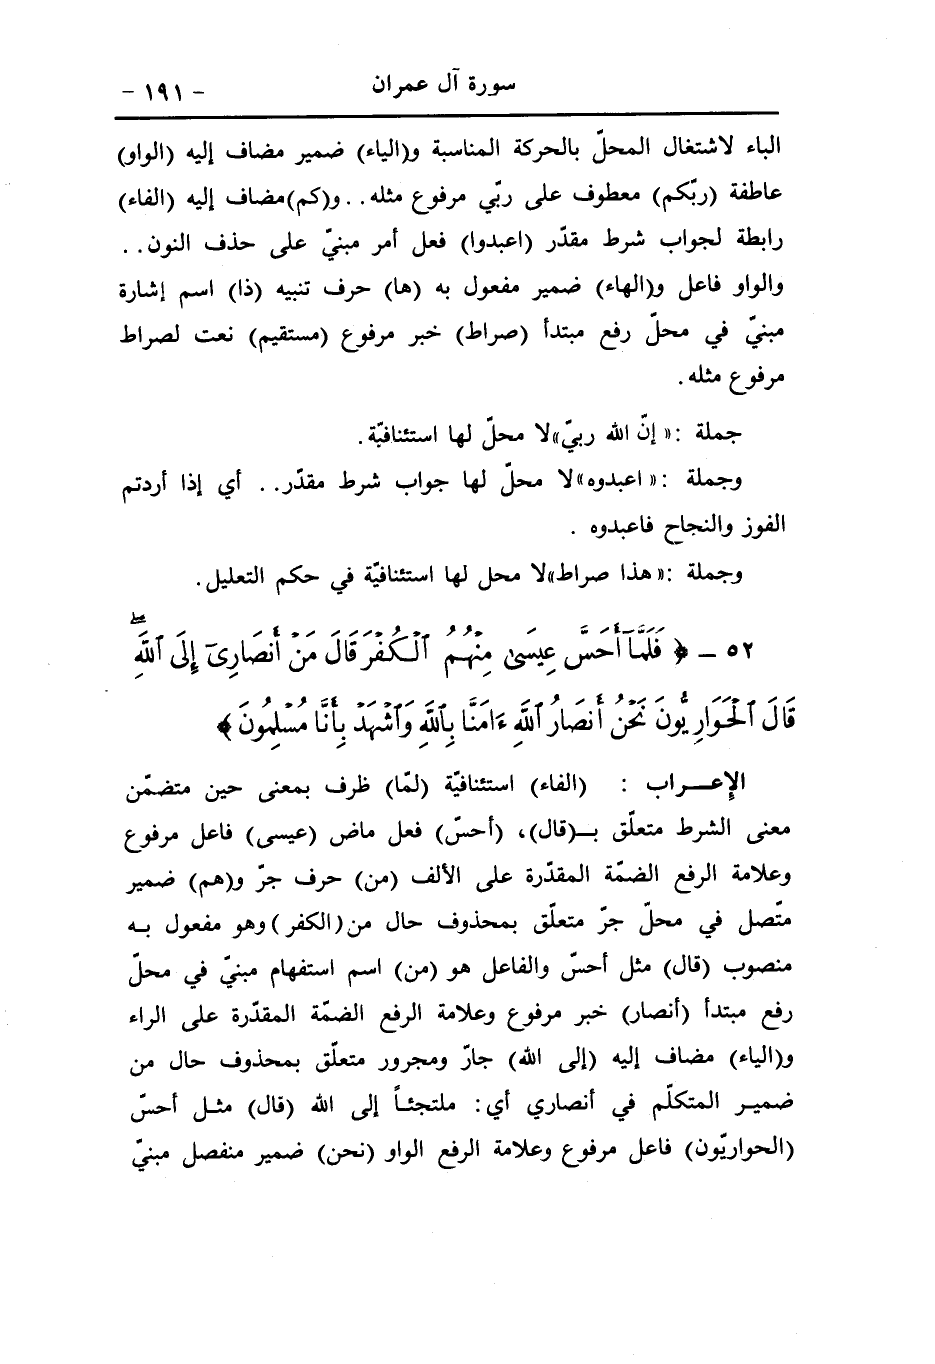 سورة آل عمران - ١٩١ -
الباء لاشتغال المحلّ بالحركة المناسبة و(الياء) ضمير مضاف إليه (الواو)
عاطفة (ربّكم) معطوف على ربّي مرفوع مثله.. و(كم)مضاف إليه (الفاء)
رابطة لجواب شرط مقدّر (اعبدوا) فعل أمر مبنيّ على حذف النون..
والواو فاعل و(الهاء) ضمير مفعول به (ها) حرف تنبيه (ذا) اسم إشارة
مبنيّ في محلّ رفع مبتدأ (صراط) خبر مرفوع (مستقيم) نعت لصراط
مرفوع مثله.
جملة :« إنّ الله ربيّ»لا محلّ لها استئنافيّة.
وجملة :« اعبدوه»لا محلّ لها جواب شرط مقدّر.. أي إذا أردتم
الفوز والنجاح فاعبدوه .
وجملة :« هذا صراط»لا محل لها استئنافيّة في حكم التعليل.
٥٢ ـ ﴿ فَلَمَّآ أَحَسَّ عِيسَىٰ مِنْهُمُ ٱلْكُفْرَ قَالَ مَنْ أَنصَارِىٓ إِلَى ٱللَّهِ ۖ
قَالَ ٱلْحَوَارِيُّونَ نَحْنُ أَنصَارُ ٱللَّهِ ءَامَنَّا بِٱللَّهِ وَٱشْهَدْ بِأَنَّا مُسْلِمُونَ ﴾
الإعـــراب : (الفاء) استئنافيّة (لمّا) ظرف بمعنى حين متضمّن
معنى الشرط متعلّق بـ(قال)، (أحسّ) فعل ماض (عيسى) فاعل مرفوع
وعلامة الرفع الضمّة المقدّرة على الألف (من) حرف جرّ و(هم) ضمير
متّصل في محلّ جرّ متعلّق بمحذوف حال من(الكفر)وهو مفعول به
منصوب (قال) مثل أحسّ والفاعل هو (من) اسم استفهام مبنيّ في محلّ
رفع مبتدأ (أنصار) خبر مرفوع وعلامة الرفع الضمّة المقدّرة على الراء
و(الياء) مضاف إليه (إلى الله) جارّ ومجرور متعلّق بمحذوف حال من
ضميـر المتكلّم في أنصاري أي: ملتجئـاً إلى الله (قال) مثـل أحسّ
(الحواريّون) فاعل مرفوع وعلامة الرفع الواو (نحن) ضمير منفصل مبنيّ